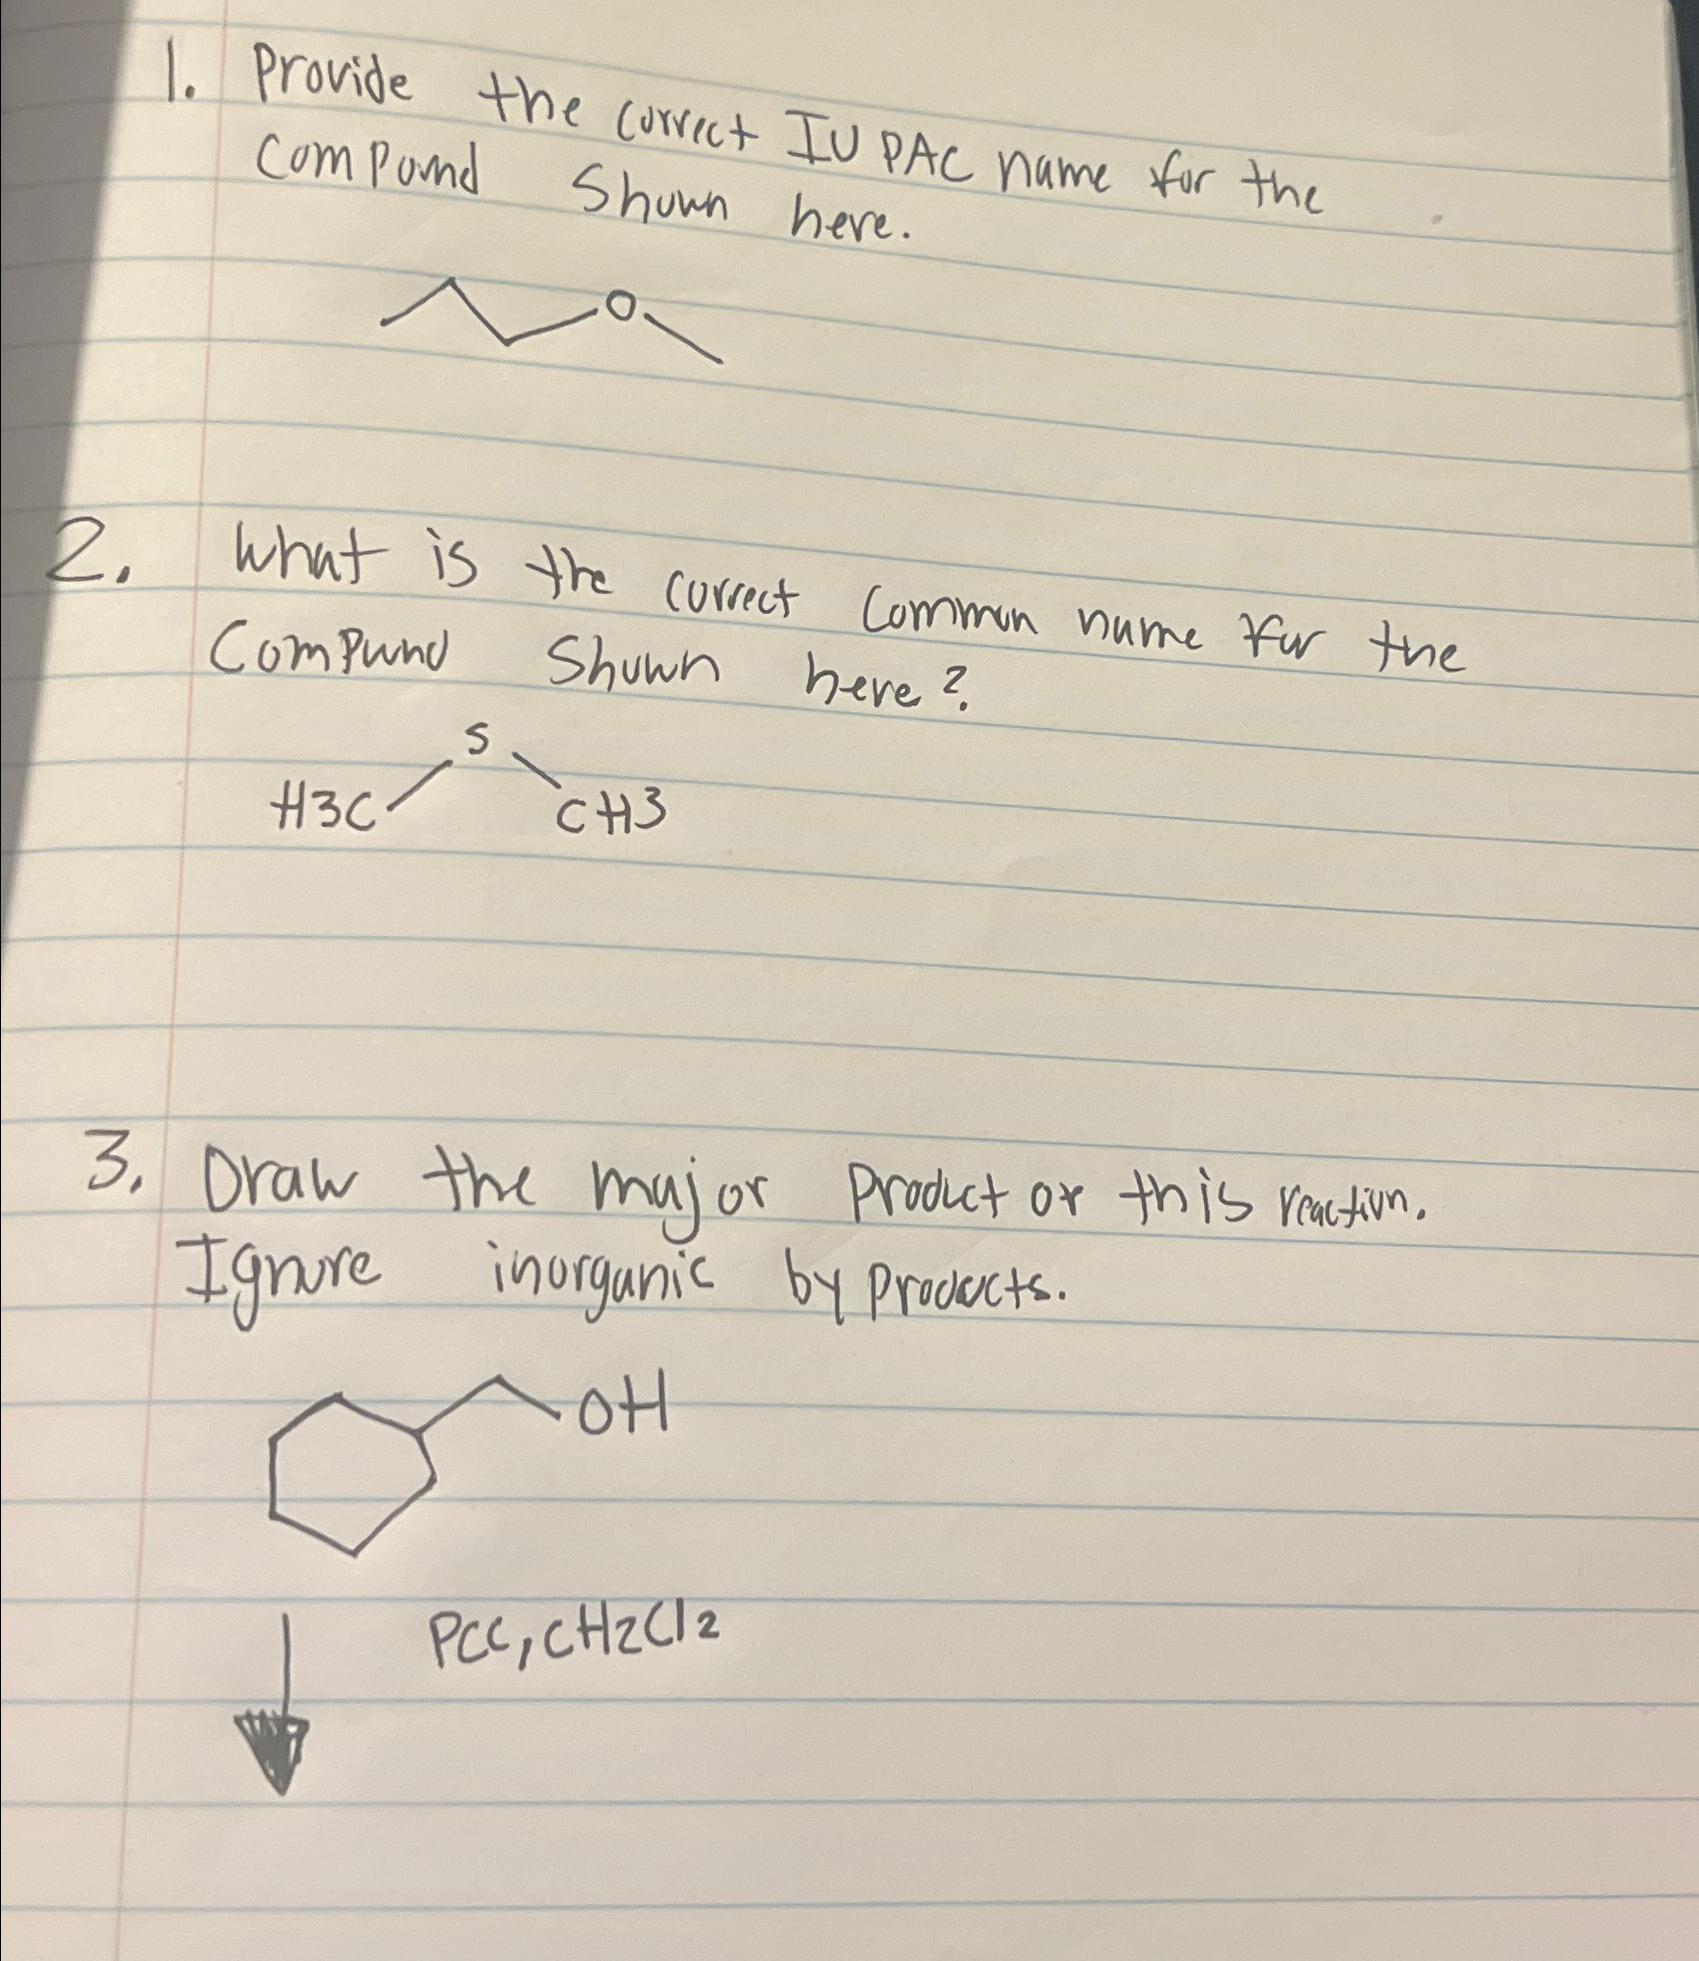 1. Provide the correct IUPAC name for the
compound shown here.
O
2. What is the correct common name for the
compound shown here?
S
H3C CH3
3. Draw the major product of this reaction.
Ignore inorganic by products.
OH
PCC, CH2Cl2